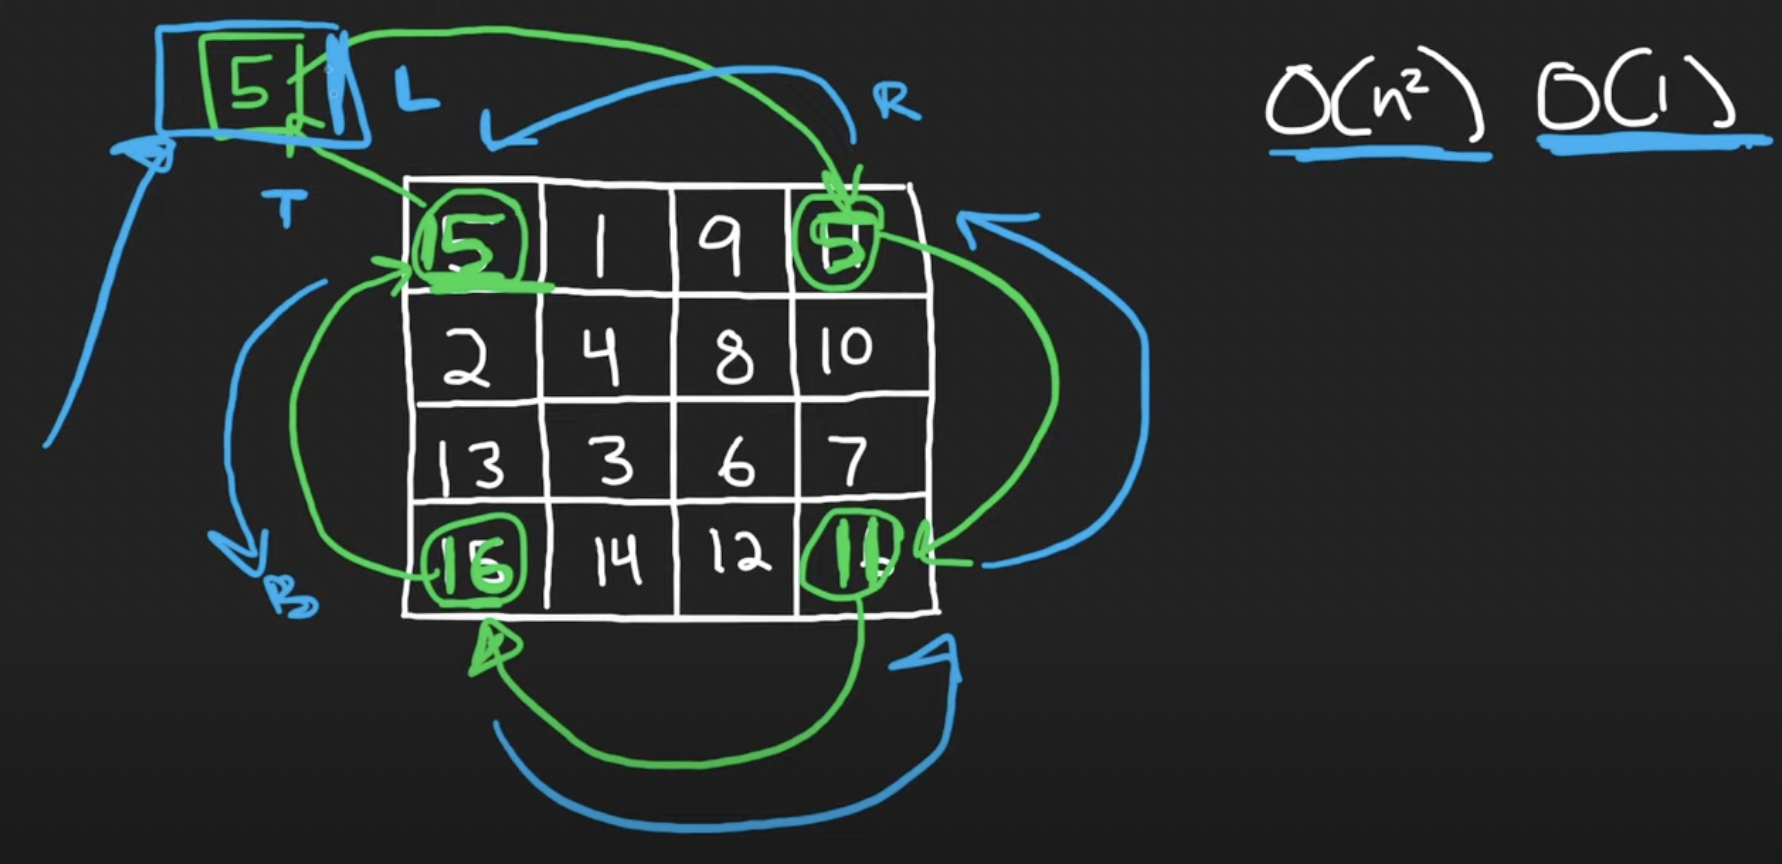 5 L R O(n²) O(1)
T
15 1 9 5
2 4 8 10
13 3 6 7
16 14 12 11
B